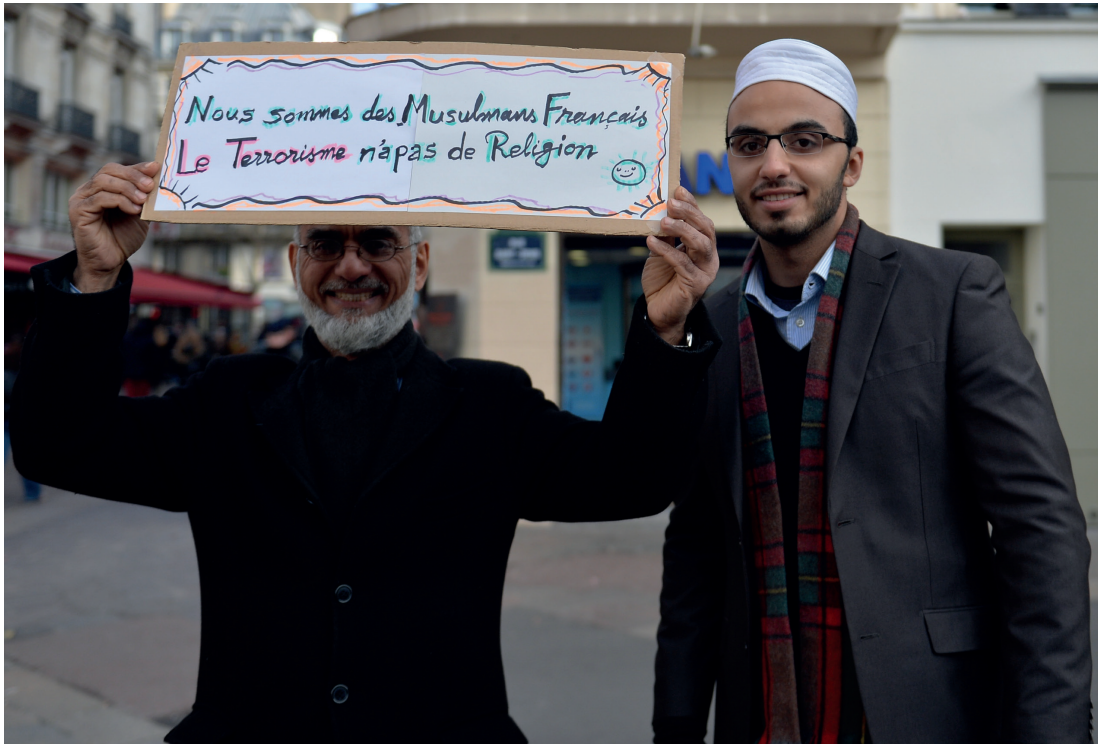 Nous sommes des Musulmans Français
Le Terrorisme n'a pas de Religion
AN